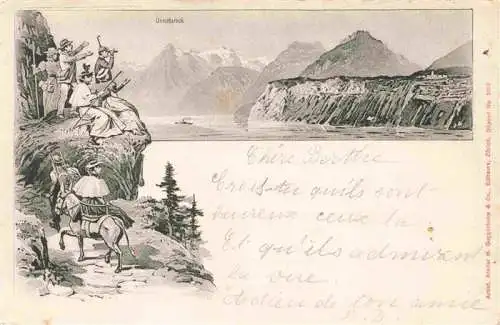 Urirotstock
Chère Berthe
Crois-tu qu'ils sont
heureux ceux la.
Et qu'ils admirent
la vue.
Adieu de ton amie
Artist. Atelier H. Guggenheim & Co., Editeurs, Zürich, Dépose No.